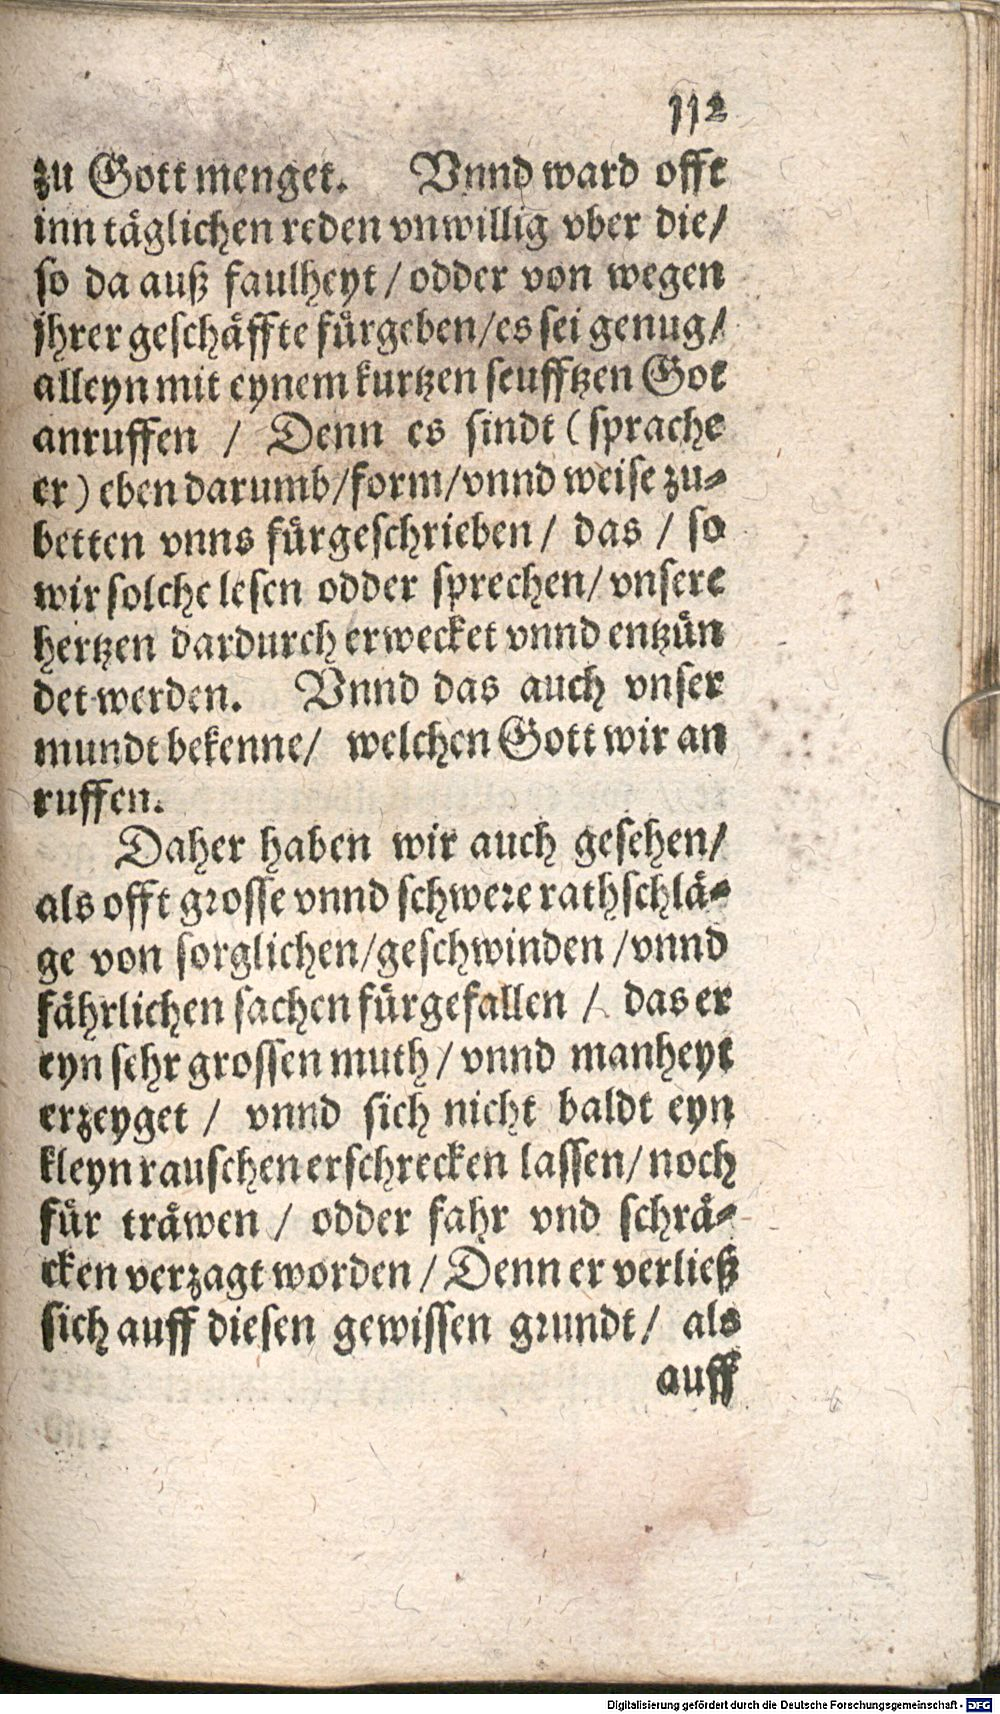 112
zu Gott menget. Vnnd ward offt
inn täglichen reden vnwillig vber die/
so da auß faulheyt / odder von wegen
jhrer geschäffte fürgeben/es sei genug/
alleyn mit eynem kurtzen seufftzen Got
anruffen / Denn es sindt ( sprache
er ) eben darumb/form/vnnd weise zu-
betten vnns fürgeschrieben / das / so
wir solche lesen odder sprechen/ vnsere
hertzen dardurch erwecket vnnd entzün
det werden. Vnnd das auch vnser
mundt bekenne/ welchen Gott wir an
ruffen.
Daher haben wir auch gesehen/
als offt grosse vnnd schwere rathschlä-
ge von sorglichen/geschwinden /vnnd
fährlichen sachen fürgefallen / das er
eyn sehr grossen muth / vnnd manheyt
erzeyget / vnnd sich nicht baldt eyn
kleyn rauschen erschrecken lassen/ noch
für träwen / odder fahr vnd schrä-
cken verzagt worden / Denn er verließ
sich auff diesen gewissen grundt / als
auff
Digitalisierung gefördert durch die Deutsche Forschungsgemeinschaft - DFG